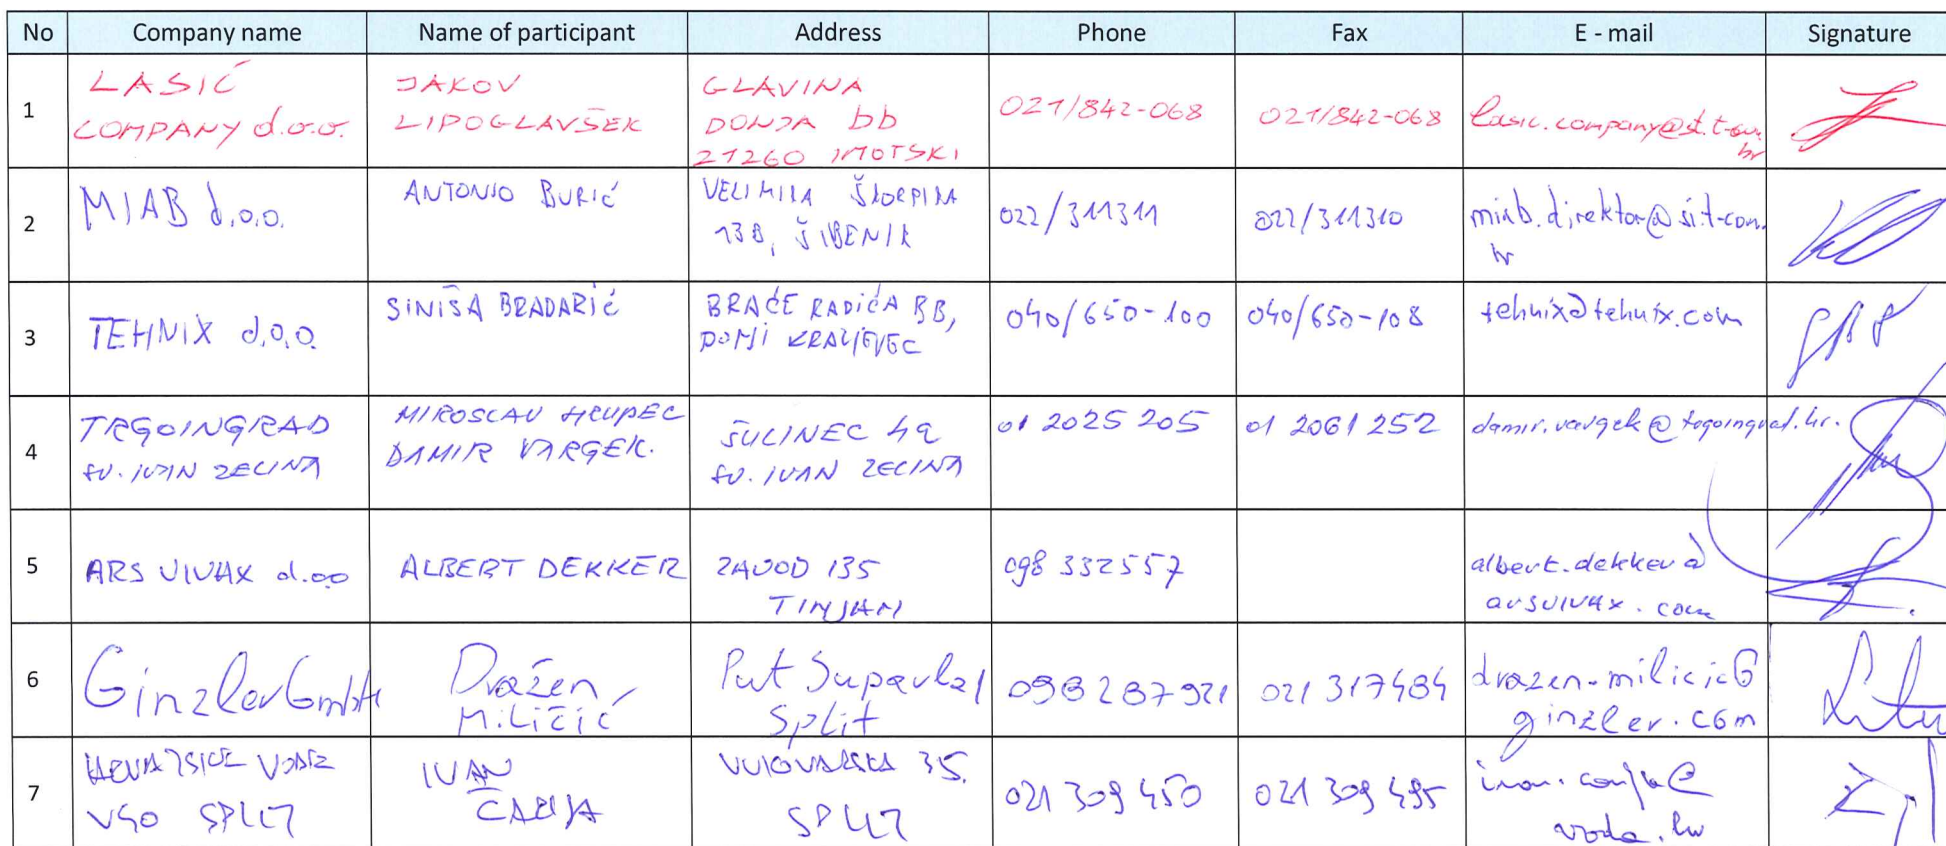 No Company name Name of participant Address Phone Fax E - mail Signature
1
LASIĆ
COMPANY d.o.o.
JAKOV
LIPOGLAVŠEK
GLAVINA
DONJA bb
21260 IMOTSKI
021/842-068
021/842-068
lasic.company@st.t-com.
hr
2
MIAB d.o.o.
ANTONIO BURIĆ
VELIMIRA ŠKORPIKA
13B, ŠIBENIK
022/311311
022/311310
miab.direktor@si.t-com.
hr
3
TEHNIX d.o.o.
SINIŠA BRADARIĆ
BRAĆE RADIĆA BB,
DONJI KRALJEVEC
040/650-100
040/650-108
tehnix@tehnix.com
4
TRGOINGRAD
SV. IVAN ZELINA
MIROSLAV HRUPEC
DAMIR VARGEK.
ŠULINEC 4a
SV. IVAN ZELINA
01 2025 205
01 2061 252
damir.vargek@togoingrad.hr.
5
ARS VIVAX d.oo
ALBERT DEKKER
ZAVOD 135
TINJAN
098 332557
albert.dekker@
arsvivax.com
6
Ginzler GmbH
Dražen
Miličić
Put Supavla 1
Split
098 287921
021 317484
drazen.milicic@
ginzler.com
7
HRVATSKE VODE
VGO SPLIT
IVAN
VUKOVARSKA 35.
SPLIT
021 309 450
021 309 495
voda.hr